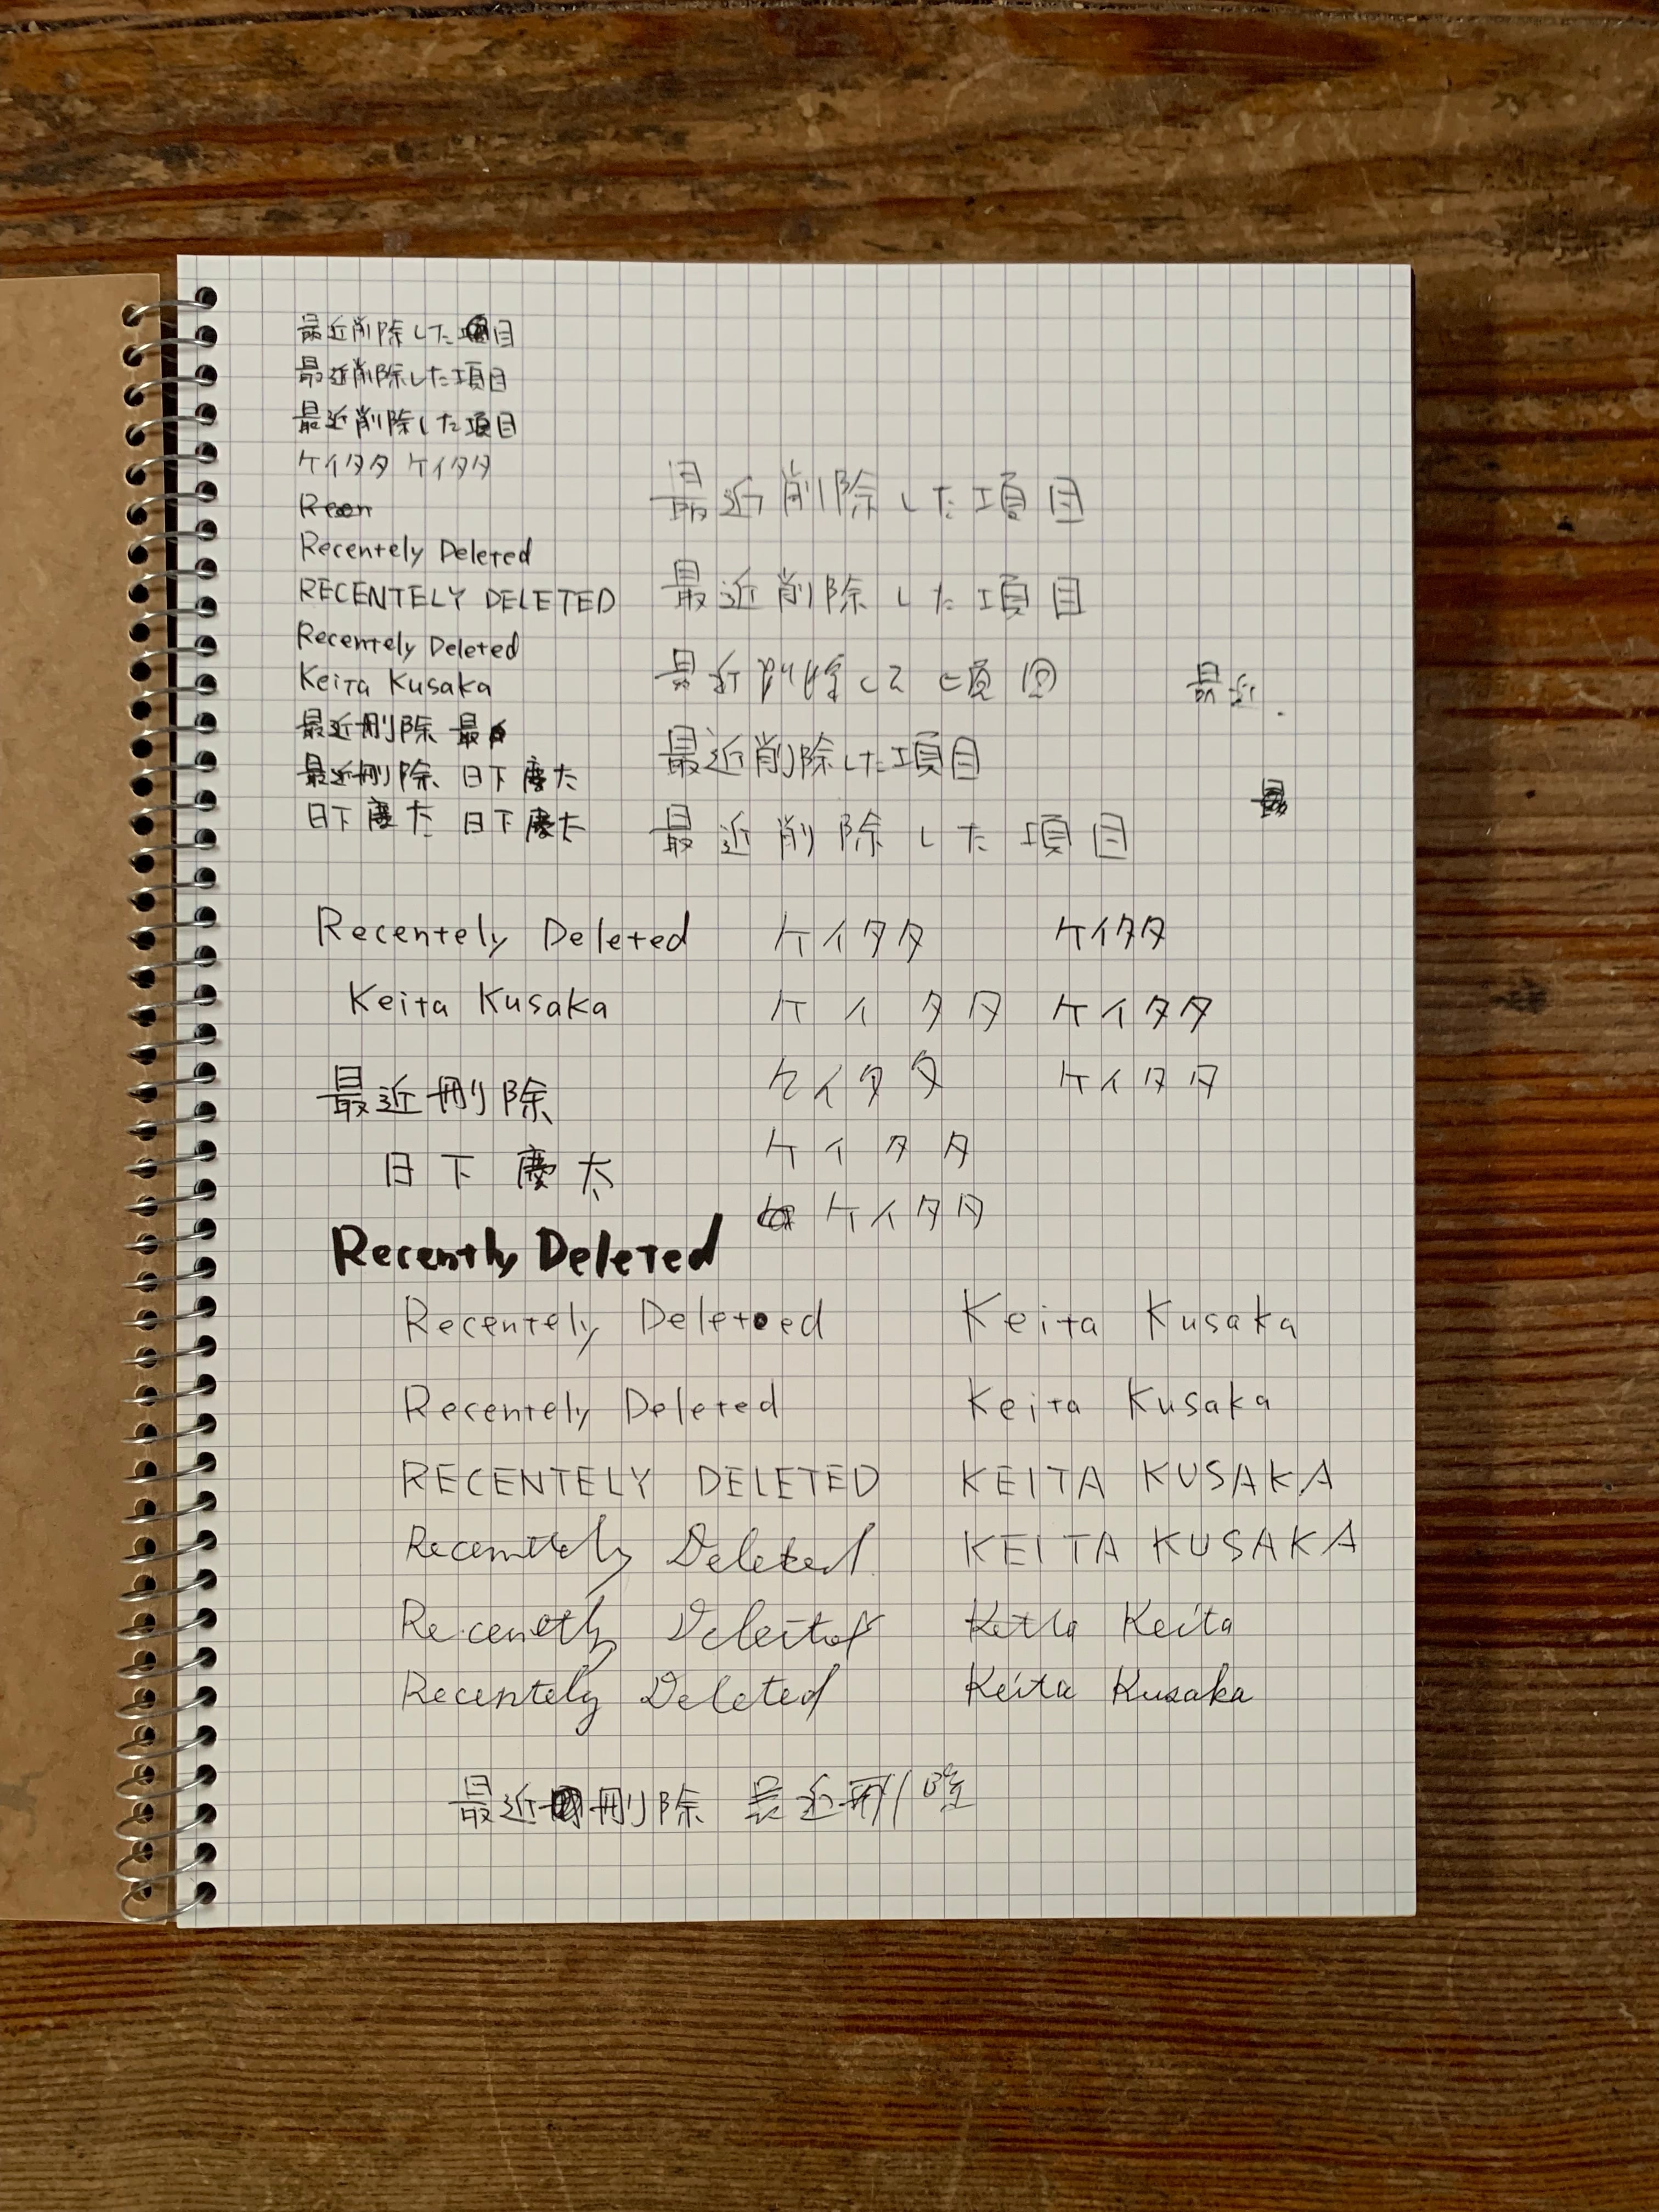 最近削除した目
最近削除した項目
最近削除した項目
ケイタタ ケイタタ
Recentely Deleted
RECENTELY DELETED
Recentely Deleted
Keita Kusaka
最近刪除 最
最近刪除 日下慶太
日下慶太 日下慶太
最近削除した項目
最近削除した項目
最近 最近
最近削除した項目
最近削除した項目
Recentely Deleted ケイタタ ケイタタ
Keita Kusaka ケイタタ ケイタタ
ケイタタ ケイタタ
最近刪除
ケイタタ
日下慶太
ケイタタ
Recently Deleted
Recentely Deleted Keita Kusaka
Recentely Deleted Keita Kusaka
RECENTELY DELETED KEITA KUSAKA
Recentely Deleted KEITA KUSAKA
Keita
Recentely Deleted Keita Kusaka
最近刪除 最近刪除